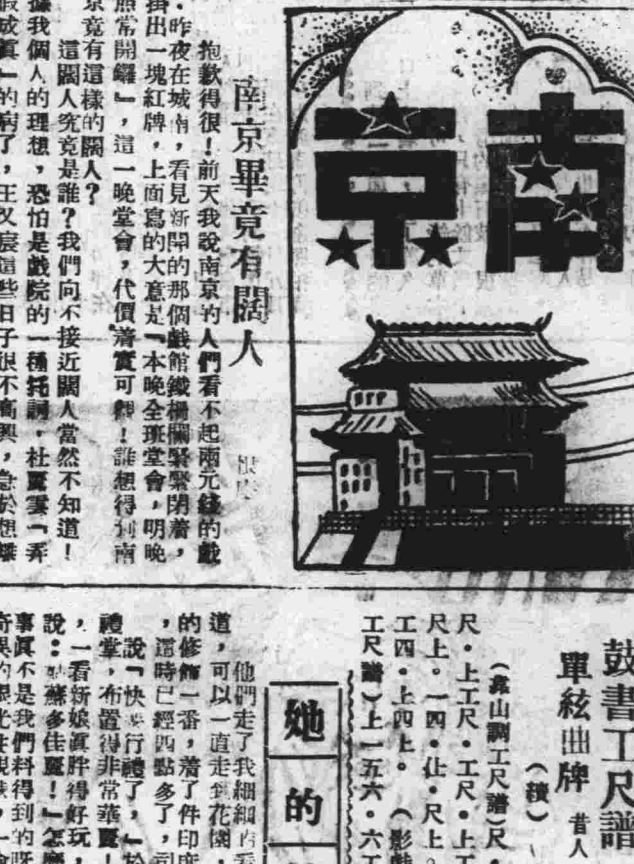 南京
南京畢竟有闊人
抱歉得很!前天我說南京的人們看不起兩元錢的戲
,昨夜在城南,看見新開的那個戲館鐵柵欄緊緊閉着,
掛出一塊紅牌,上面寫的大意是『本晚全班堂會,明晚
照常開鑼』,這一晚堂會,代價着實可觀!誰想得到南
京竟有這樣的闊人?
這闊人究竟是誰?我們向不接近闊人當然不知道!
據我個人的理想,恐怕是戲院的一種託詞,杜麗雲『弄
假成眞』的病了,王又宸這些日子很不高興,急於想離
鼓書工尺譜
單絃曲牌
昔人
(續)
(靠山調工尺譜)尺·
尺·上工尺·工尺·上工
尺上。一四·仩·尺上
工四·上四上。(影戲
工尺譜)上一五六·六工
她的
他們走了我細細的看
道,可以一直走到花園,
的修飾一番,着了件印度
,這時已經四點多了,司
說『快行禮了,』於
禮堂,布置得非常華麗!
,一看新娘眞胖得好玩,
說:蘇多佳麗!』怎麼
事眞不是我們料得到的呀